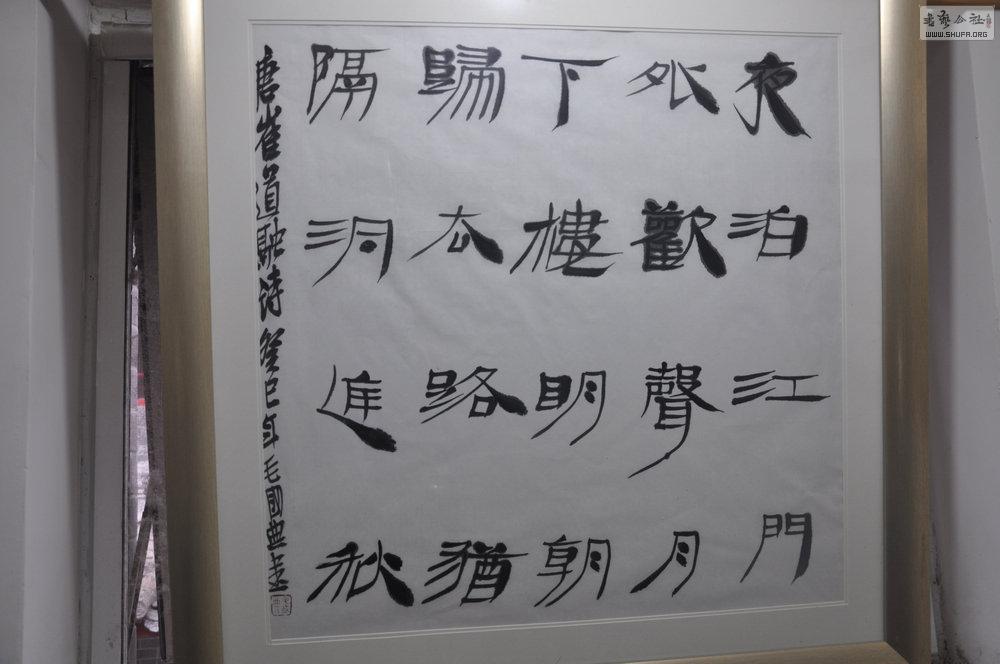 夜泊江門
外歡聲月
下樓明朝
歸去路猶
隔洞庭秋
唐崔道融诗癸巳年毛國典書
书艺公社
WWW.SHUFA.ORG